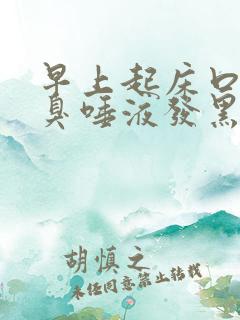 早上起床口
臭唾液發黑
胡慎之
未经同意禁止转载